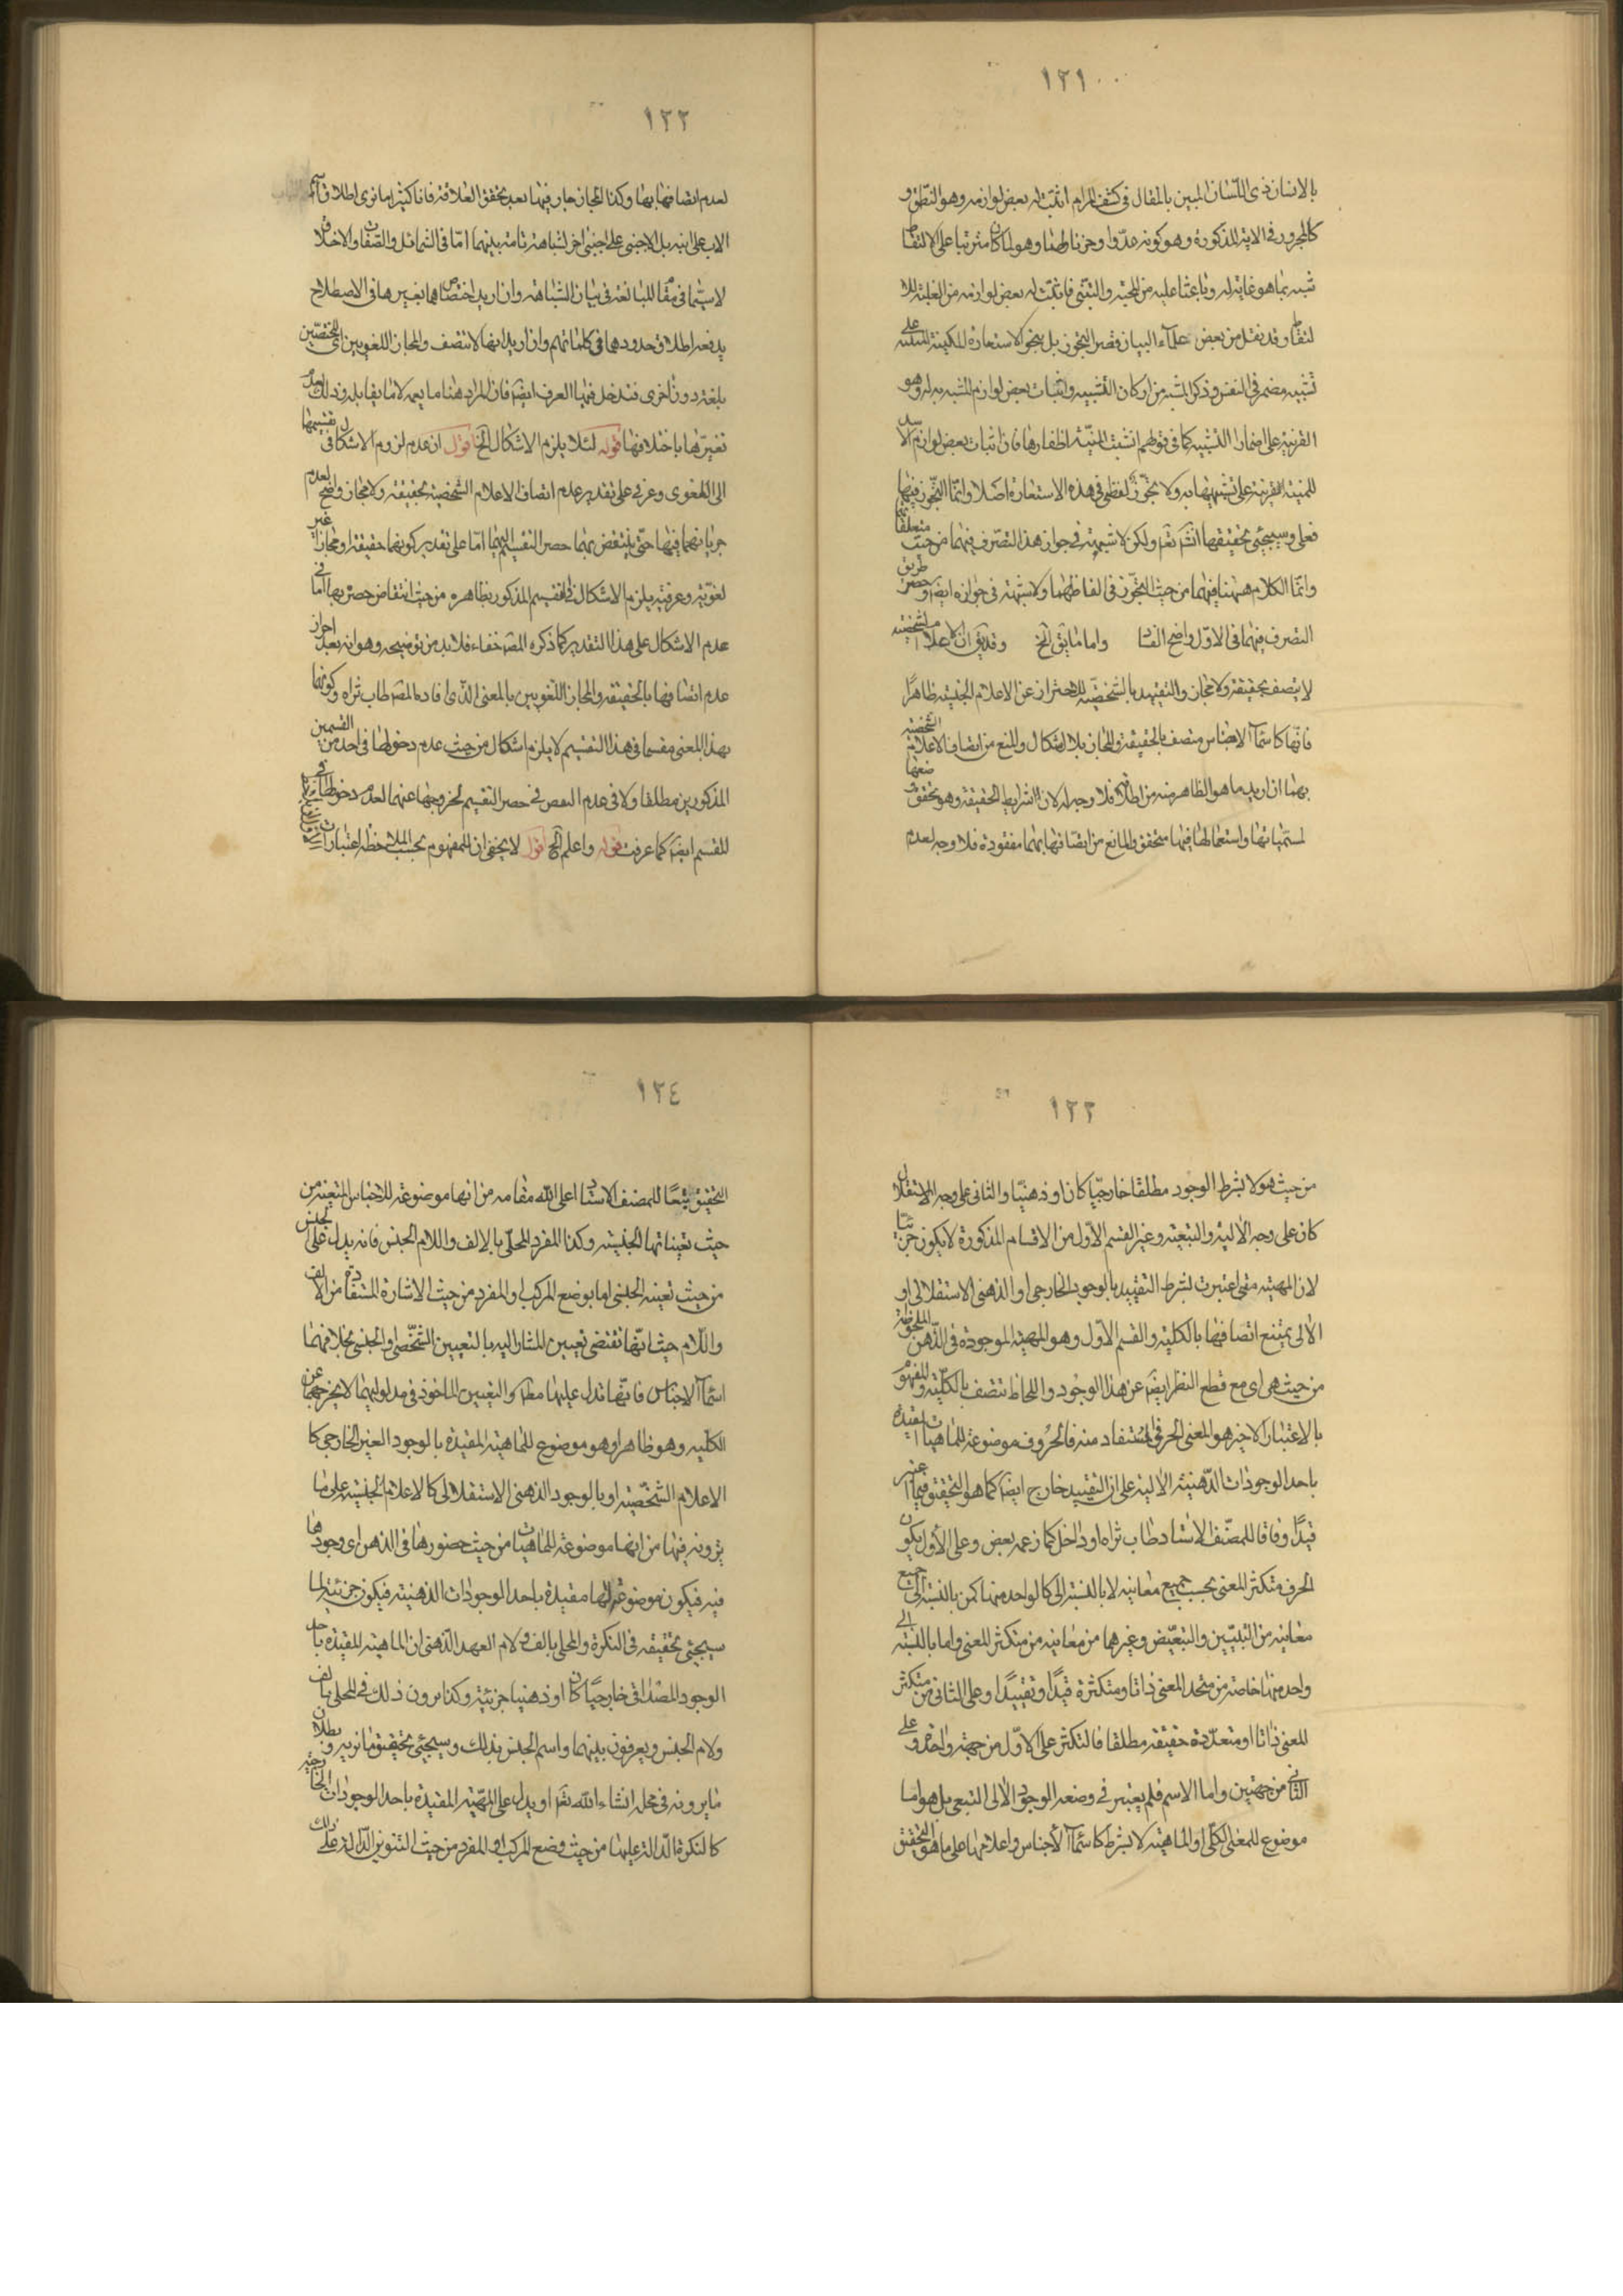 ١٢١
بالانسان ذى اللسان المبين بالمقال فى كشف المرام اثبت له بعض لوازمه وهو النطق و
كالمجرور فى الاية المذكورة وهو كونه عدوا وحزنا لهما وهو لما كان مترتبا على الالتقاط
شبه بما هو غاية له وباعثا عليه من المحبة والتبنى فاثبت له بعض لوازمه من الغلبة للا
لتقاط وقد نقل من بعض علماء البيان قصر التجوز بل بنحو الاستعارة المكنية المبنية على
تشبيه مضمر فى النفس وذكر المشبه من اركان التشبيه واثبات بعض لوازم المشبه به له وهو
القرينة على اضمار التشبيه كما فى قولهم انشبت المنية اظفارها فان اثبات بعض لوازم الاسد
للمنية القرينة على تشبيهها به ولا تجوز لفظى فى هذه الاستعارة اصلا وانما التجوز فيها
فعلى وسيجئ تحقيقها انشه تعه ولكن لا شبهة فى جواز هذا التصرف فيهما من حيث متعلقاتهم
وانما الكلام ههنا فيهما من حيث التجوز فى الفاظهما ولا شبهة فى جوازه ايضه وحصر طريق
التصرف فيهما فى الاول واضح الفسا واما ما يق الخ وقد يق ان الاعلام الشخصية
لا يتصف بحقيقة ولا مجاز والتقييد بالشخصية للاحتراز عن الاعلام الجنسية ظاهرا
فانها كاسماء الاجناس متصف بالحقيقة والمجاز بلا اشكال والمنع من اتصاف الاعلام الشخصية
بهما ان اريد ما هو الظاهر منه من اطلاقه فلا وجه له لان الشرايط الحقيقة وهو تحقق وضعها
لمسمياتها واستعمالها فيها متحقق والمانع من اتصافها بهما مفقودة فلا وجه لعدم
١٢٢
لعدم اتصافها بها وكذا المجاز جار فيها بعد تحقق العلاقة فانا كثيرا ما نرى اطلاق اسم
الاب على ابنه بل الاجنبى على اجنبى اخر لشباهة تامة بينهما اما فى الشمائل والصفات والاخلاق
لا سيما فى مقام المبالغة فى بيان الشباهة وان اريد اختصاصهما بغيرها فى الاصطلاح
يدفعه اطلاق حدودهما فى كلماتهم وان اريد انها لا تتصف والمجاز اللغويين اى المختصين
بلغة دون اخرى فتدخل فيها العرف ايضه فان المراد هنا ما يعمه لا ما يقابله وذلك لعدم
تغيرها باختلافها قوله لئلا يلزم الاشكال الخ اقول ان عدم لزوم الاشكال فى تقسيمها
الى اللغوى وعرفى على تقدير عدم اتصاف الاعلام الشخصية بحقيقة ولا مجاز واضح لعدم
جريانهما فيها حتى ينتقض بهما حصر التقسيم اليهما اما على تقدير كونهما حقيقة او مجازا غير
لغوية وعرفية يلزم الاشكال فى التقسيم المذكور بظاهره من حيث انتقاض حصره بها اما فى
عدم الاشكال على هذا التقدير كما ذكره المصه خفاء فلا بد من توضيحه وهو انه بعد احراز
عدم اتصافها بالحقيقة والمجاز اللغويين بالمعنى الذى افاده المصه طاب ثراه وكونها
بهذا المعنى مقسما فى هذا التقسيم لا يلزم اشكال من حيث عدم دخولها فى احد من القسمين
المذكورين مطلقا ولا فى عدم النقص فى حصر التقسيم لخروجها عنهما لعدم دخولها فى
المقسم ايضه كما عرفت قوله واعلم الخ اقول لا يخفى ان المفهوم بحسب الملاحظة اعتبارات
١٢٣
من حيث هو لا بشرط الوجود مطلقا خارجيا كان او ذهنيا والثانى على وجه الاستقلال
كان على وجه الالية والتبعية وغير القسم الاول من الاقسام المذكورة لا يكون جزئيا
لان المهية متى اعتبرت بشرط التقييد بالوجود الخارجى او الذهنى الاستقلالى او
الالى يمتنع اتصافها بالكلية والقسم الاول وهو المهية الموجودة فى الذهن الملحوظة
من حيث هى اى مع قطع النظر ايضه عن هذا الوجود واللحاظ تتصف بالكلية والمفهوم
بالاعتبار الاخير هو المعنى الحرفى المستفاد منه فالحروف موضوعة للماهيات المقيدة
باحد الوجودات الذهنية الالية على ان التقييد خارج ايضه كما هو التحقيق فيما اعتبر
قيدا وفاقا للمصنف الاستاد طاب ثراه او داخل كما زعمه بعض وعلى الاول يكون
الحرف متكثر المعنى بحسب جميع معانيه لا بالنسبة الى كالواحد منها كمن بالنسبة الى جميع
معانيه من التبيين والتبعيض وغيرهما من معانيه من متكثر المعنى واما بالنسبة الى
واحد منها خاصة من متحد المعنى ذاتا ومتكثرة قيدا وتقييدا وعلى الثانى من متكثر
المعنى ذاتا او متعددة حقيقة مطلقا فالتكثر على الاول من جهة واحدة وعلى
الثانى من جهتين واما الاسم فلم يعتبر فى وضعه الوجود الالى التبعى بل هو اما
موضوع للمعنى الكلى او الماهية لا بشرط كاسماء الاجناس واعلامها على ما هو التحقيق
١٢٤
التحقيق تبعا للمصنف الاستاد اعلى الله مقامه من انها موضوعة للاجناس المتعينة من
حيث تعيناتها الجنسية وكذا المفرد المحلى بالالف واللام الجنس فانه يدل على الجنس
من حيث تعينه الجنسى اما بوضع المركب او المفرد من حيث الاشارة المستفادة من الالف
واللام حيث انها تقتضى تعيين المشار اليه بالتعيين الشخصى او الجنسى بخلافهما
اسماء الاجناس فانها تدل عليها مطه والتعيين الماخوذ فى مدلوليهما لا يخرجهما عن
الكلية وهو ظاهر او هو موضوع للماهية المقيدة بالوجود العينى الخارجى كا
الاعلام الشخصية او بالوجود الذهنى الاستقلالى كالاعلام الجنسية على ما
يرونه فيها من انها موضوعة للماهيات من حيث حضورها فى الذهن اى وجودها
فيه فيكون موضوعة لها مقيدة باحد الوجودات الذهنية فيكون جزئية لما
سيجئ تحقيقه فى النكرة والمحلى بالف ولام العهد الذهنى ان الماهية المقيدة باحد
الوجود المصداقى خارجيا كان او ذهنيا جزئية وكذا يرون ذلك فى المحلى بالف
ولام الجنس ويعرفون بينهما واسم الجنس بذلك وسيجئ تحقيق ما نريه وبطلان
ما يرونه فى محله انشاء الله تعه او يدل على المهية المقيدة باحد الوجودات الخارجية
كالنكرة الدالة عليها من حيث وضع المركب او المفرد من حيث التنوين الدالة على ذلك